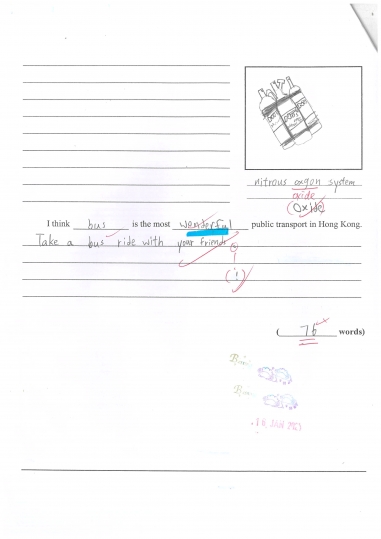 nitrous oxgon system
oxide
Oxide
I think bus is the most wonderful public transport in Hong Kong.
Take a bus ride with your friend
(!)
( 76 words)